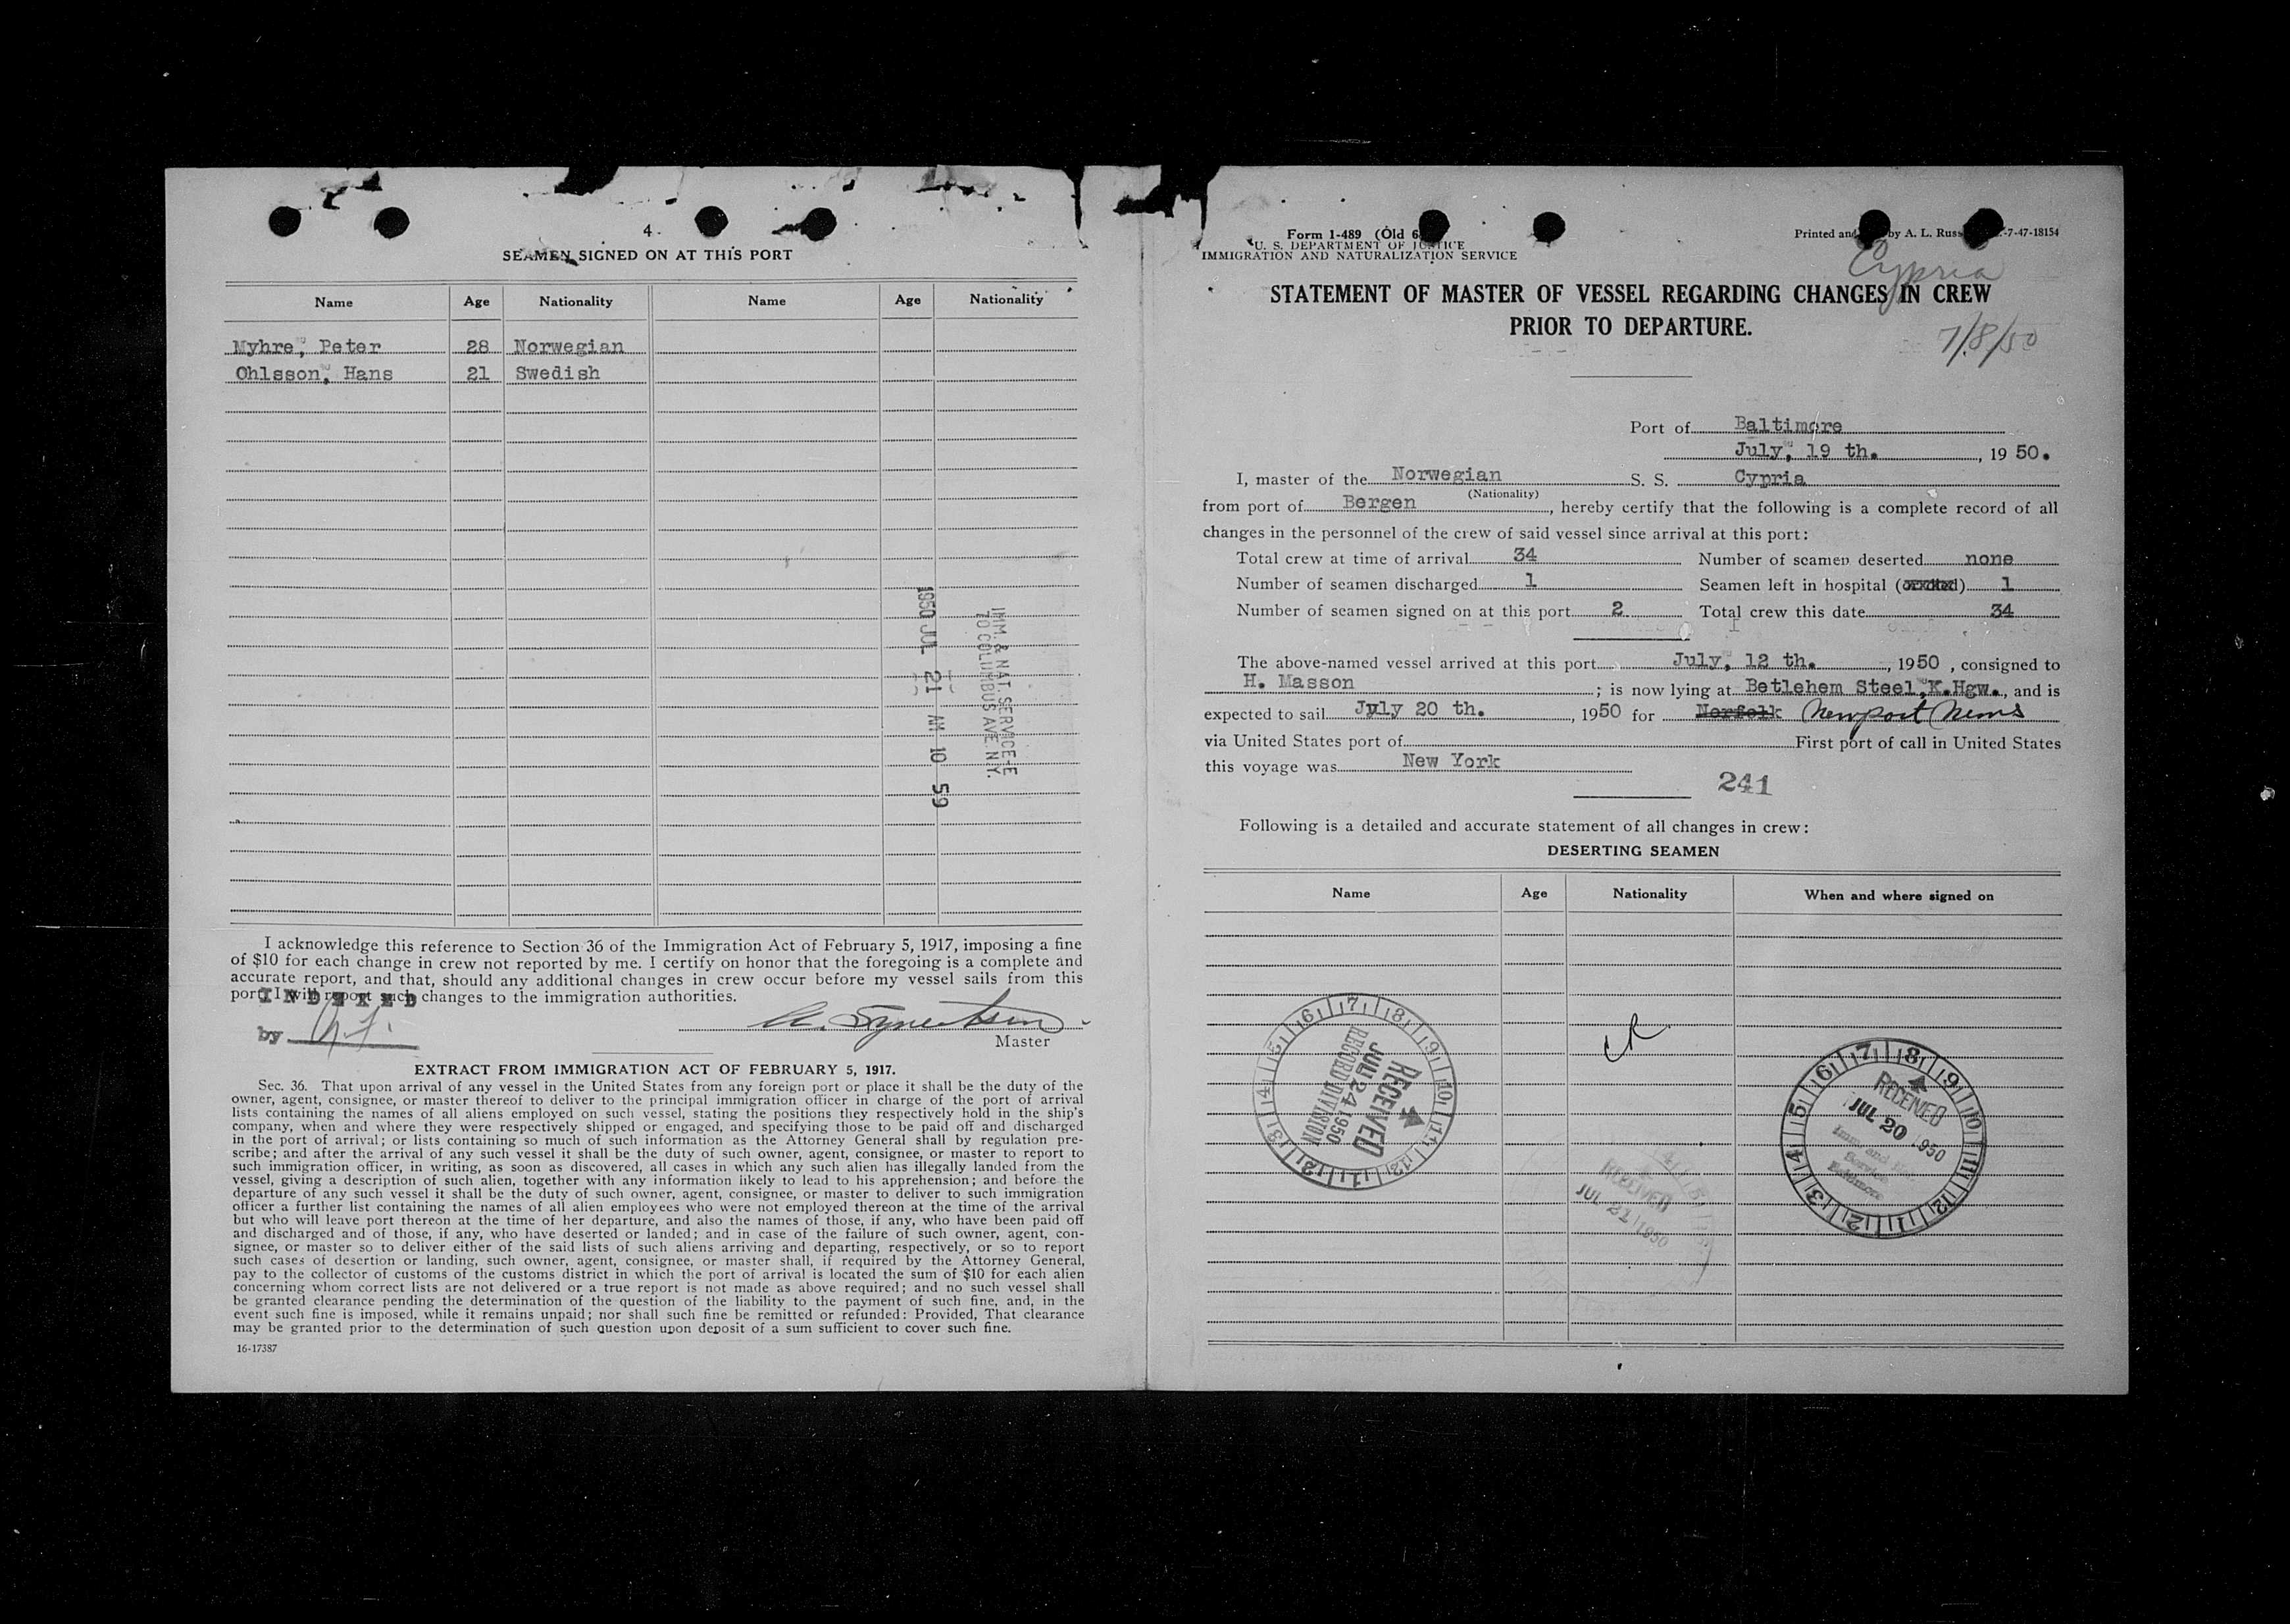 4
SEAMEN SIGNED ON AT THIS PORT
Name Age Nationality Name Age Nationality
Myhre, Peter 28 Norwegian
Ohlsson, Hans 21 Swedish
IMM. & NAT. SERVICE-E
70 COLUMBUS AVE. N.Y.
1950 JUL 21 AM 10 59
I acknowledge this reference to Section 36 of the Immigration Act of February 5, 1917, imposing a fine
of $10 for each change in crew not reported by me. I certify on honor that the foregoing is a complete and
accurate report, and that, should any additional changes in crew occur before my vessel sails from this
port, I will report such changes to the immigration authorities.
INDEXED
by
Master
EXTRACT FROM IMMIGRATION ACT OF FEBRUARY 5, 1917.
Sec. 36. That upon arrival of any vessel in the United States from any foreign port or place it shall be the duty of the
owner, agent, consignee, or master thereof to deliver to the principal immigration officer in charge of the port of arrival
lists containing the names of all aliens employed on such vessel, stating the positions they respectively hold in the ship's
company, when and where they were respectively shipped or engaged, and specifying those to be paid off and discharged
in the port of arrival; or lists containing so much of such information as the Attorney General shall by regulation pre-
scribe; and after the arrival of any such vessel it shall be the duty of such owner, agent, consignee, or master to report to
such immigration officer, in writing, as soon as discovered, all cases in which any such alien has illegally landed from the
vessel, giving a description of such alien, together with any information likely to lead to his apprehension; and before the
departure of any such vessel it shall be the duty of such owner, agent, consignee, or master to deliver to such immigration
officer a further list containing the names of all alien employees who were not employed thereon at the time of the arrival
but who will leave port thereon at the time of her departure, and also the names of those, if any, who have been paid off
and discharged and of those, if any, who have deserted or landed; and in case of the failure of such owner, agent, con-
signee, or master so to deliver either of the said lists of such aliens arriving and departing, respectively, or so to report
such cases of desertion or landing, such owner, agent, consignee, or master shall, if required by the Attorney General,
pay to the collector of customs of the customs district in which the port of arrival is located the sum of $10 for each alien
concerning whom correct lists are not delivered or a true report is not made as above required; and no such vessel shall
be granted clearance pending the determination of the question of the liability to the payment of such fine, and, in the
event such fine is imposed, while it remains unpaid; nor shall such fine be remitted or refunded: Provided, That clearance
may be granted prior to the determination of such question upon deposit of a sum sufficient to cover such fine.
16-17387
Form 1-489 (Old 6
U. S. DEPARTMENT OF JUSTICE
IMMIGRATION AND NATURALIZATION SERVICE
Printed and by A. L. Russ -7-47-18154
Cypria
STATEMENT OF MASTER OF VESSEL REGARDING CHANGES IN CREW
PRIOR TO DEPARTURE.
7/8/50
Port of Baltimore
July, 19 th., 1950.
I, master of the Norwegian S. S. Cypria
(Nationality)
from port of Bergen, hereby certify that the following is a complete record of all
changes in the personnel of the crew of said vessel since arrival at this port:
Total crew at time of arrival 34 Number of seamen deserted none
Number of seamen discharged 1 Seamen left in hospital 1
Number of seamen signed on at this port 2 Total crew this date 34
The above-named vessel arrived at this port July, 12 th., 1950, consigned to
H. Masson; is now lying at Betlehem Steel, K.Hgw., and is
expected to sail July 20 th., 1950 for Norfolk Newport News
via United States port of First port of call in United States
this voyage was New York
241
Following is a detailed and accurate statement of all changes in crew:
DESERTING SEAMEN
Name Age Nationality When and where signed on
CR
RECEIVED
JUL 24 1950
RECORD DIVISION
RECEIVED
JUL 21 1950
RECEIVED
JUL 20 1950
Baltimore